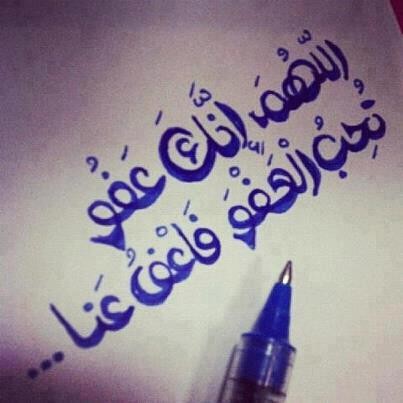 اللّهُمَ انَّكَ عَفُوُ
تُحِبُ الْعَفْوَ فَاعْفُ عَنا...